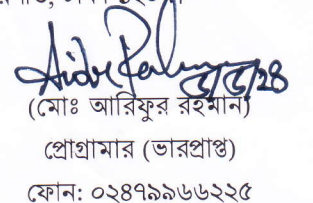 ৫/৫/২৪
(মোঃ আরিফুর রহমান)
প্রোগ্রামার (ভারপ্রাপ্ত)
ফোন: ০২৪৭৯৯৬৬২২৫